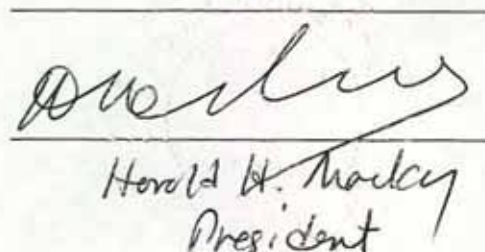 Harold H. Mackay
President